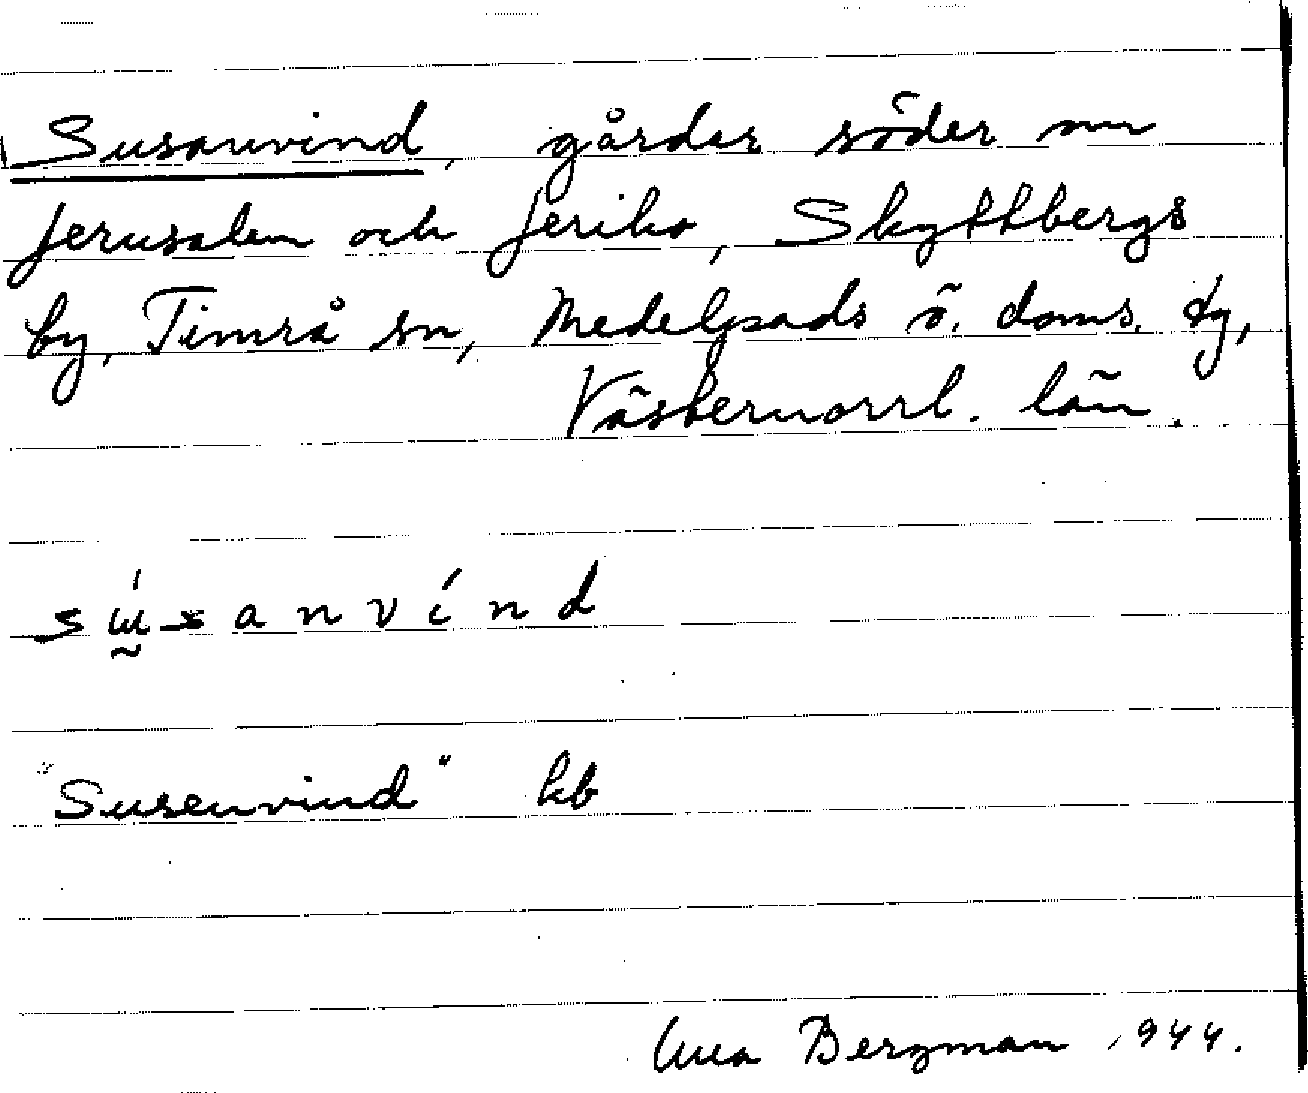 Susanvind, gårdar söder om
Jerusalem och Jeriko, Skyttbergs
by, Timrå sn, Medelpads ö. doms. tg,
Västernorrl. län.
súsanvínd
"Susenvind" kb
Bergman 1944.